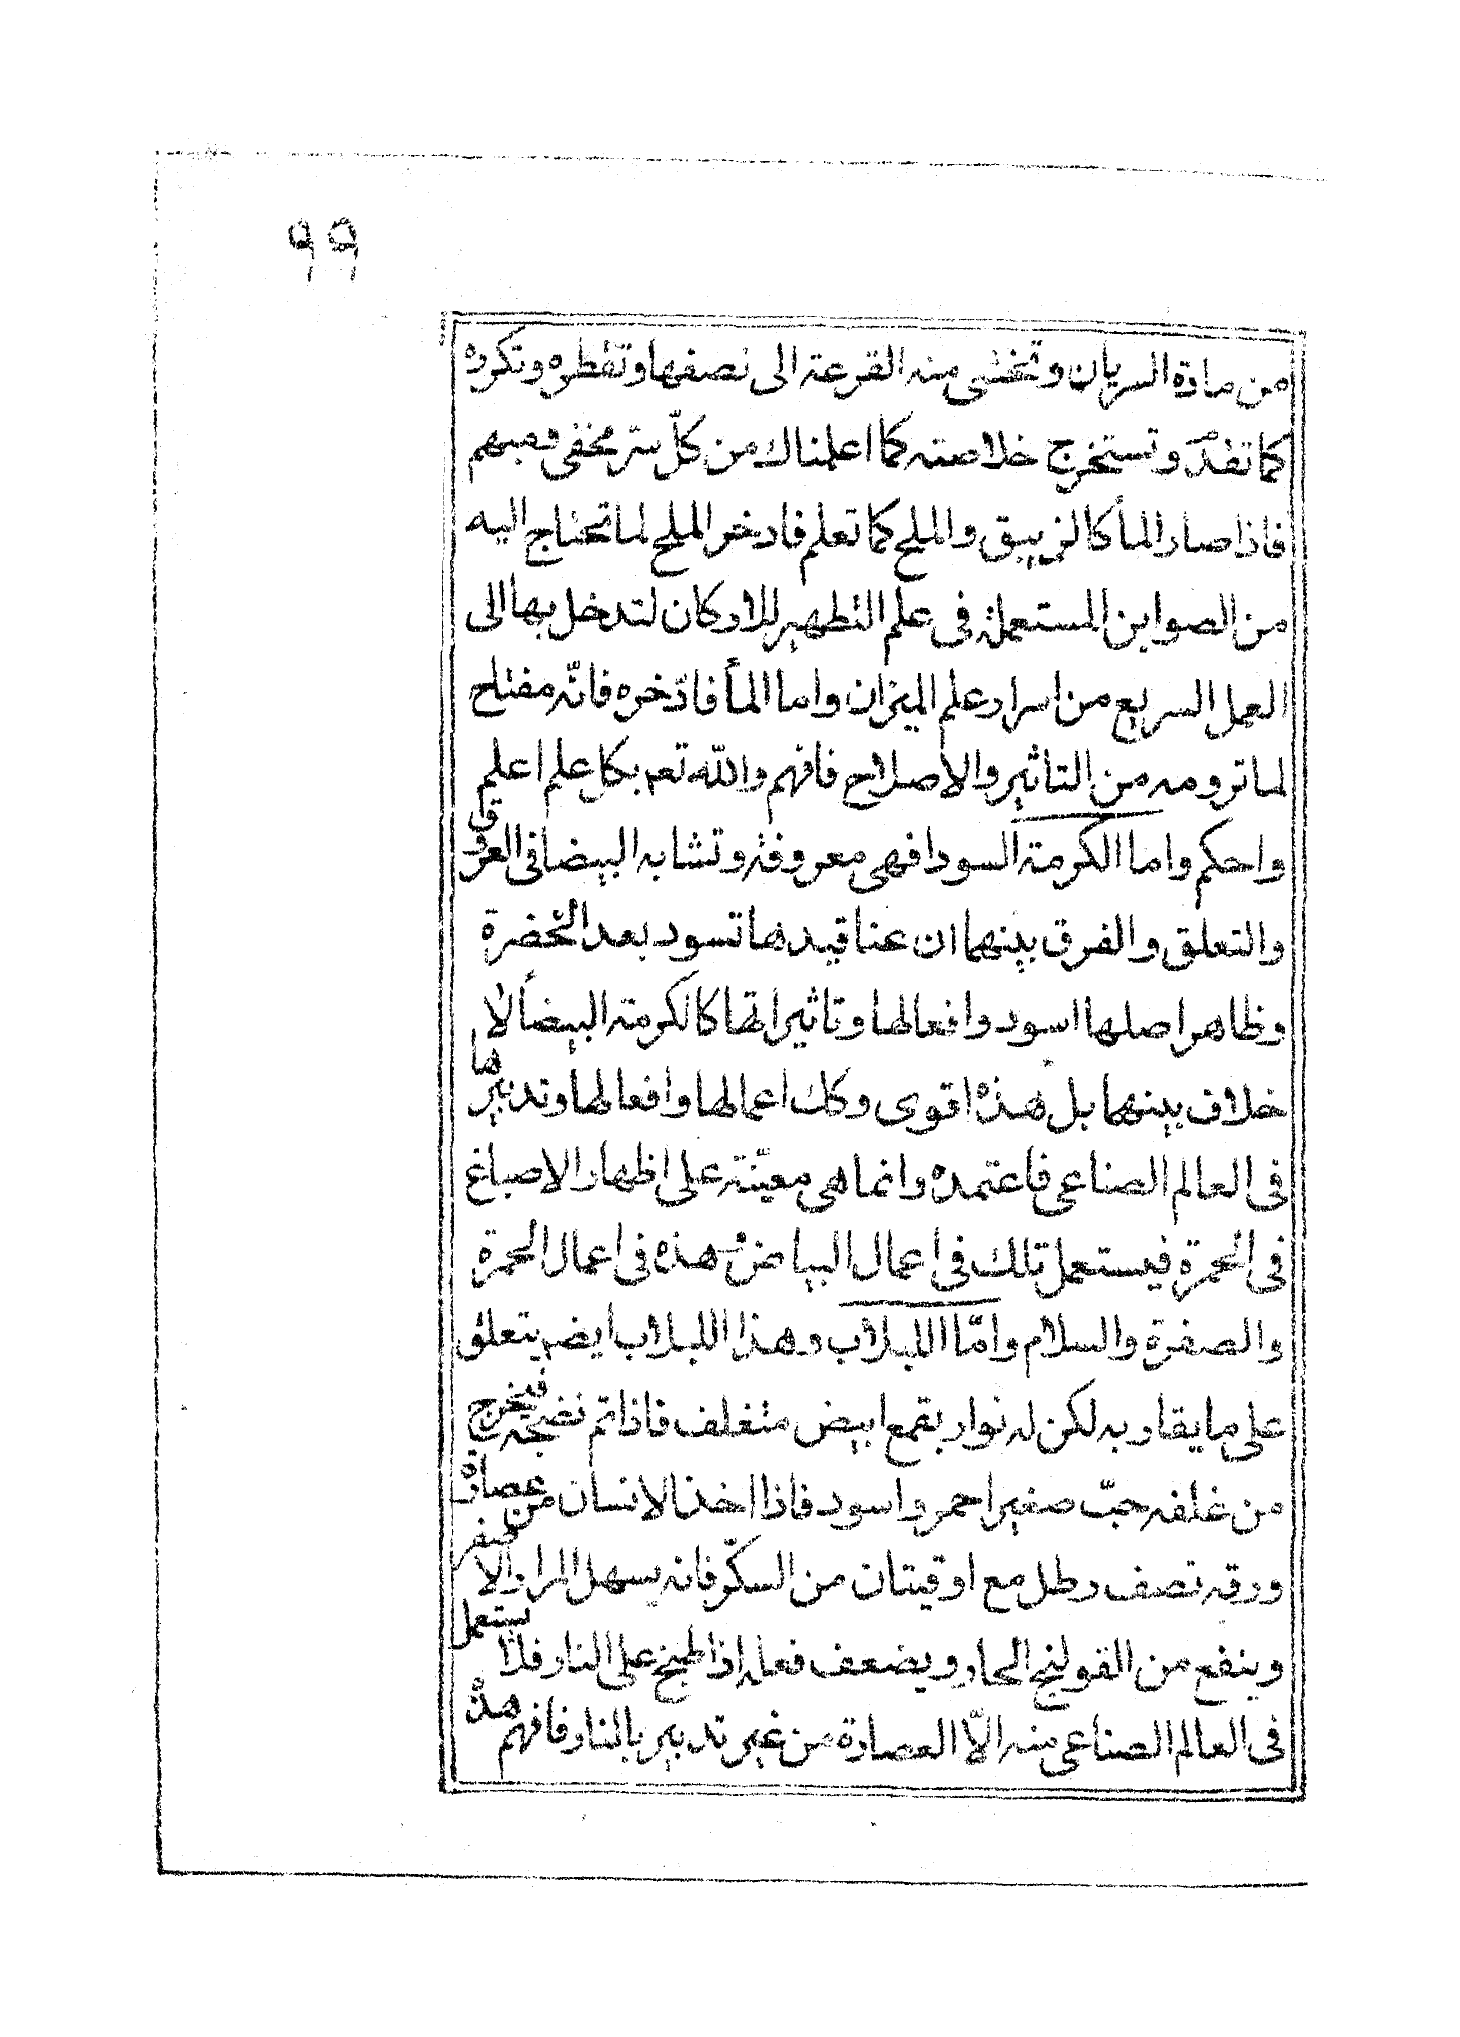 ٩٩
من مادة السريان وتخشى منه القرعة الى نصفها وتقطره وتكرره
كما تقدم وتستخرج خلاصته كما اعلمناك من كلّ سرّ مخفى ومبهم
فاذا صار المأ كالزيبق والملح كما تعلم فادخر الملح لما تحتاج اليه
من الصوابن المستعملة فى علم التطهير للاركان لتدخل بها الى
العمل السريع من اسرار علم الميزان واما المأ فادّخره فانّه مفتاح
لما ترومه من التاثير والاصلاح فافهم والله تعم بكل علم اعلم
واحكم واما الكرمة السودا فهى معروفة وتشابه البيضا فى العروق
والتعلق والفرق بينهما ان عناقيدها تسود بعد الخضرة
وظاهر اصلها اسود وافعالها وتاثيراتها كالكرمة البيضأ لا
خلاف بينهما بل هذه اقوى وكك اعمالها وافعالها وتدبيرها
فى العالم الصناعى فاعتمده وانما هى معيّنة على اظهار الاصباغ
فى الحمرة فيستعمل تلك فى اعمال البياض وهذه فى اعمال الحمرة
والصفرة والسلام وامّا اللبلاب وهذا اللبلاب ايضم يتعلق
على ما يقاربه لكن له نوار بقمع ابيض متغلف فاذا تم نضجه فيخرج
من غلفه حبّ صغير احمر واسود فاذا اخذ الانسان من عصارة
ورقه نصف رطل مع اوقيتان من السكّر فانه يسهل المرار الاصفر
وينفع من القولنج الحار ويضعف فعله اذا طبخ على النار فلا يستعمل
فى العالم الصناعى منه الّا العصارة من غير تدبير بالنار فافهم هذه